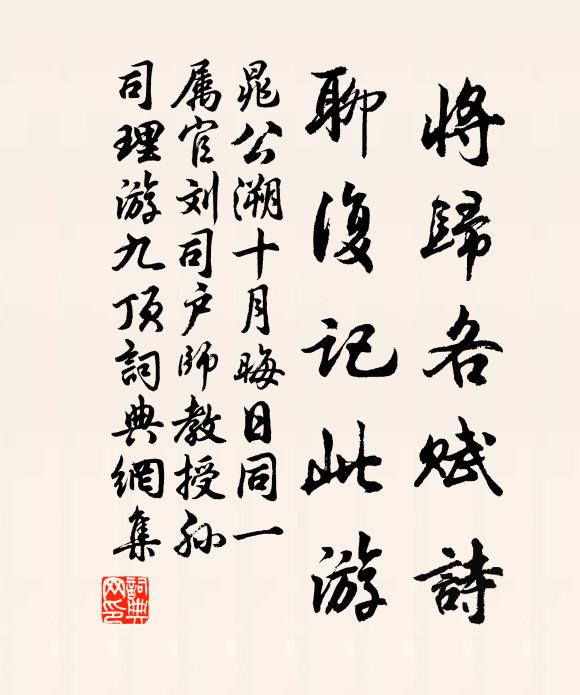 將歸各賦詩
聊復记此游
晁公溯十月晦日同一
属官刘司户师教授孙
司理游九顶詞典網集
詞典
网印